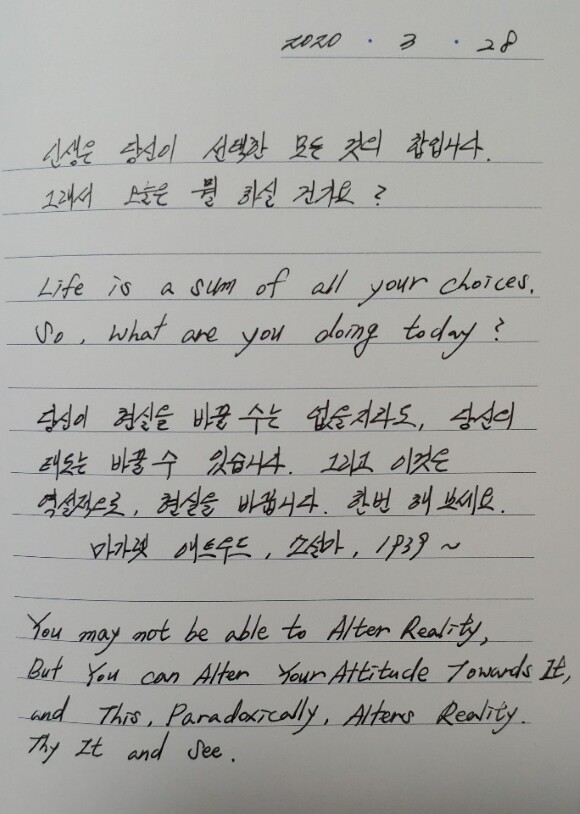 2020 · 3 · 28
인생은 당신이 선택한 모든 것의 합입니다.
그래서 오늘은 뭘 하실 건가요?
Life is a sum of all your choices.
So, what are you doing today?
당신이 현실을 바꿀 수는 없을지라도, 당신의
태도는 바꿀 수 있습니다. 그리고 이것은
역설적으로, 현실을 바꿉니다. 한번 해 보세요.
마가렛 애트우드, 소설가, 1939 ~
You may not be able to Alter Reality,
But You can Alter Your Attitude Towards It,
and This, Paradoxically, Alters Reality.
Thy It and See.